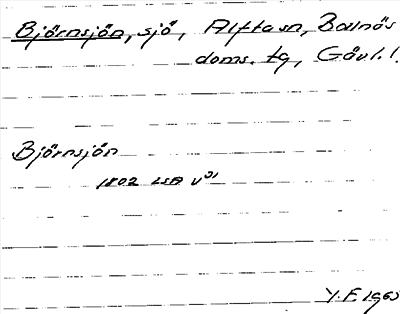 Björnsjön, sjö, Alfta sn, Bollnäs
doms. tg, Gävl. l.
Björnsjön
1802 LSA V31
Y.F. 1960